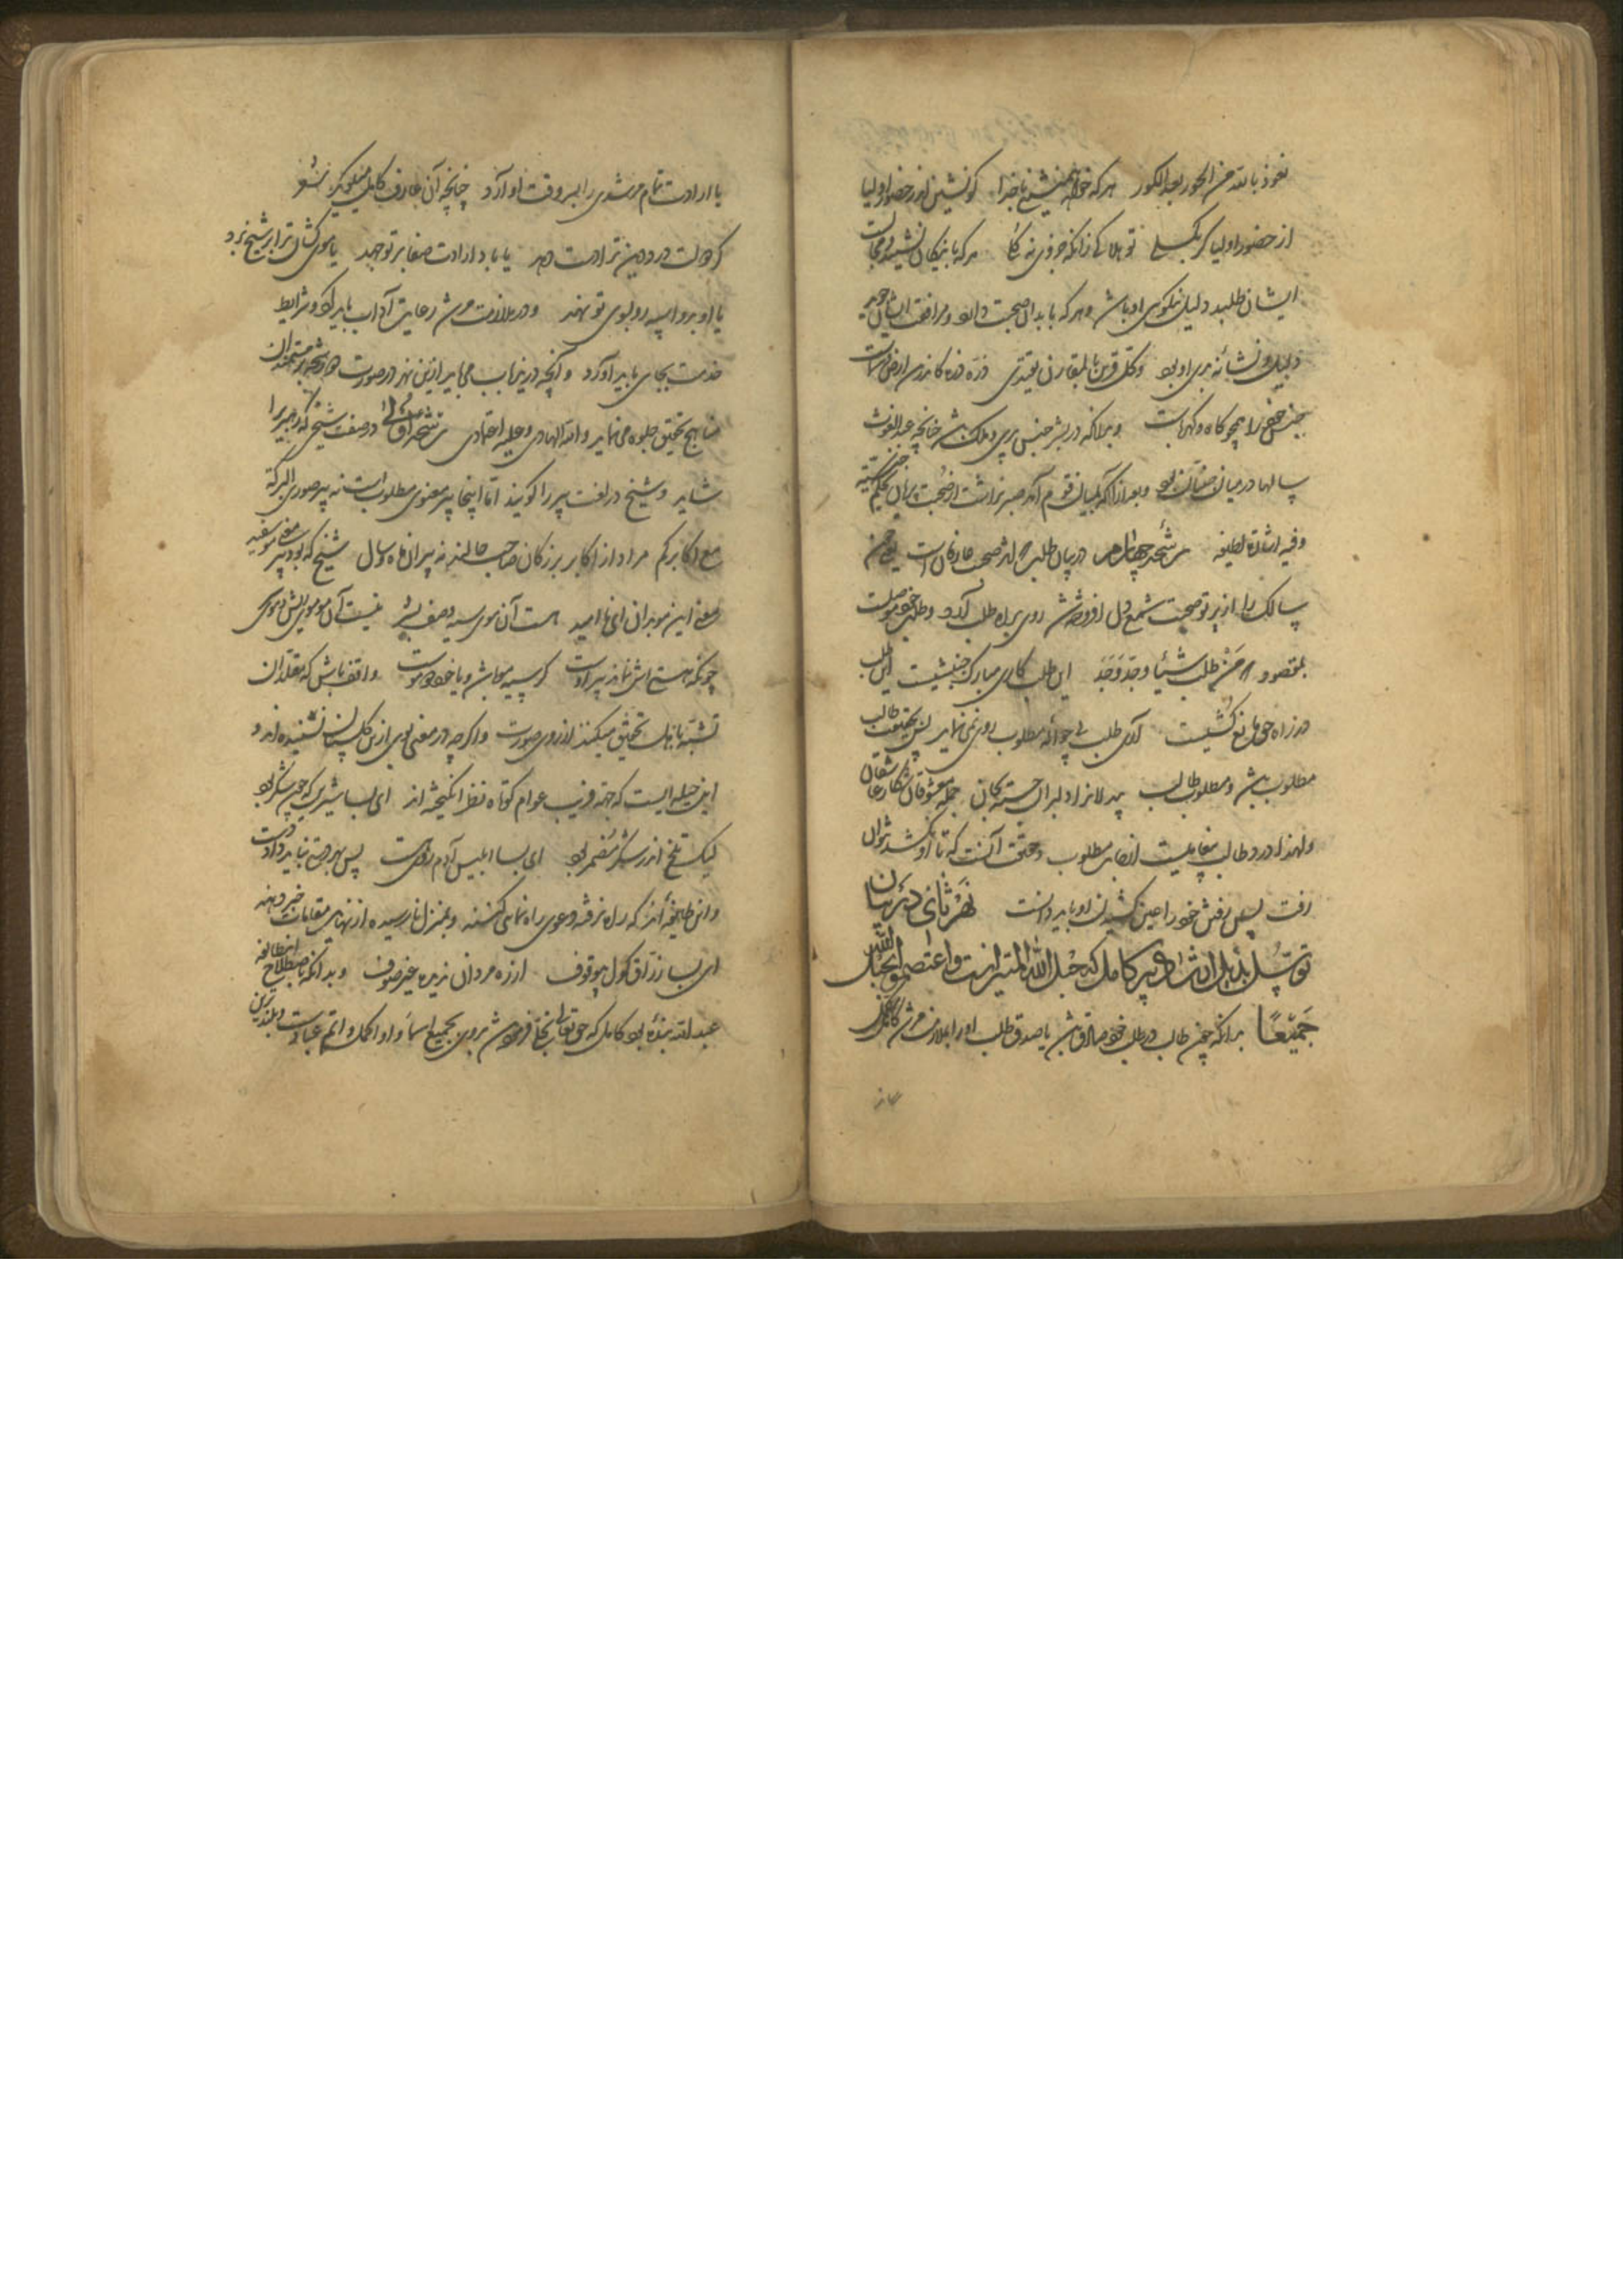 نعوذ بالله من الحور بعد الکور هر که خواهد همنشینی با خدا کو نشین اندر حضور اولیا
از حضور اولیا گر بگسلی تو هلاکی زانکه جزوی نه کلی هر که با نیکان نشیند و مجالست
ایشان طلبد دلیل نیکوی او باشد و هر که با بدان صحبت دارد و مرافقت ایشان جوید
دلیل و نشانه بدی او بود و کل قرین بالمقارن یقتدی ذره ذره کاندرین ارض و سماست
جنس خود را همچو کاه و کهرباست و بدانکه در بشر جنس پری و ملک باشد چنانچه عبدالغوث
سالها در میان جنیان بود و بعد از آنکه بمیان قوم آمد صبر نداشت از صحبت پریان بحکم جنسیت
و فیه اشارة لطیفه رشحه چهارم در بیان طلب که اثر صحبت عارفان است یعنی چون
سالک را از پرتو صحبت شمع دل افروخته شد روی براه طلب آورد و طلب خود موصلست
بمقصود که من طلب شیئا وجدّ وجد این طلب کاری مبارک جنبشیست این طلب
در راه حق مانع کشیست آری طلب بی جوانه مطلوب روی نمی نماید پس بحقیقت طالب
مطلوب باشد و مطلوب طالب بیدلانرا دلبران جسته بجان جمله معشوقان شکار عاشقان
و لهذا درد طالب پیغامیست از جانب مطلوب و حقیقت آنست که تا او نکشد نتوان
رفت پس رفتن خود را عین کشیدن او باید دانست نهر ثانی در بیان
توسل بذیل ارشاد پیر کامل که حبل الله المتین است واعتصموا بحبل الله
جمیعا بدانکه چون طالب در طلب خود صادق باشد یا صدق طلب او را بملازمت مرشد کامل رساند
با ارادت تمام مرشدی را بسر وقت او آرد چنانچه آن عارف کامل میفرماید شعر
گر دلت درد دین ترا دست دهد یا باد ارادت صفا بر تو جهد یا موی کشان ترا بر شیخ برد
یا او برو اسپه رو بسوی تو نهد و در ملازمت مرشد رعایت آداب باید کرد و شرایط
خدمت بجای باید آورد و آنچه درین باب می باید ازین نهر در صورت هر رشحه بر مستعدان
مناهج تحقیق جلوه می نماید و الله الهادی و علیه اعتمادی رشحه اولی در صفت شیخی که رهبری را
شاید و شیخ در لغت پیر را گویند اما اینجا پیر معنوی مطلوب است نه پیر صوری البرکة
مع اکابرکم مراد از اکابر بزرگان صاحب حالند نه پیران ماه و سال شیخ که بود پیر یعنی مو سفید
معنی این مو بدان ای نا امید هست آن موی سیه وصف بشر نیست آن مو موی ریش و موی سر
چونکه هستی اش نماند پیر اوست گر سیه مو باشد و یا خود دو موست و واقف باش که مقلدان
تشبه باهل تحقیق میکنند از روی صورت و اگر چه در معنی بوی ازین گلستان نشنیده اند و
این حیله ایست که جهة فریب عوام کوتاه نظر انگیخته اند ای بسا شیرین که چون شکر بود
لیک تلخ اندر شکر مضمر بود ای بسا ابلیس آدم روی است پس بهر دستی نباید داد دست
و این طایفه اند که راه نرفته دعوی راه نمائی کنند و بمنزل نارسیده از نهایت مقامات خبر دهند
ای بسا رزاق گول بیوقوف از ره مردان ندیده غیر صوف و بدانکه باصطلاح این طایفه
عبد الله بنده بود کامل که حق تعالی تجلی فرموده باشد بروی بجمیع اسما و او اکمل و اتم عباد است و بلندترین